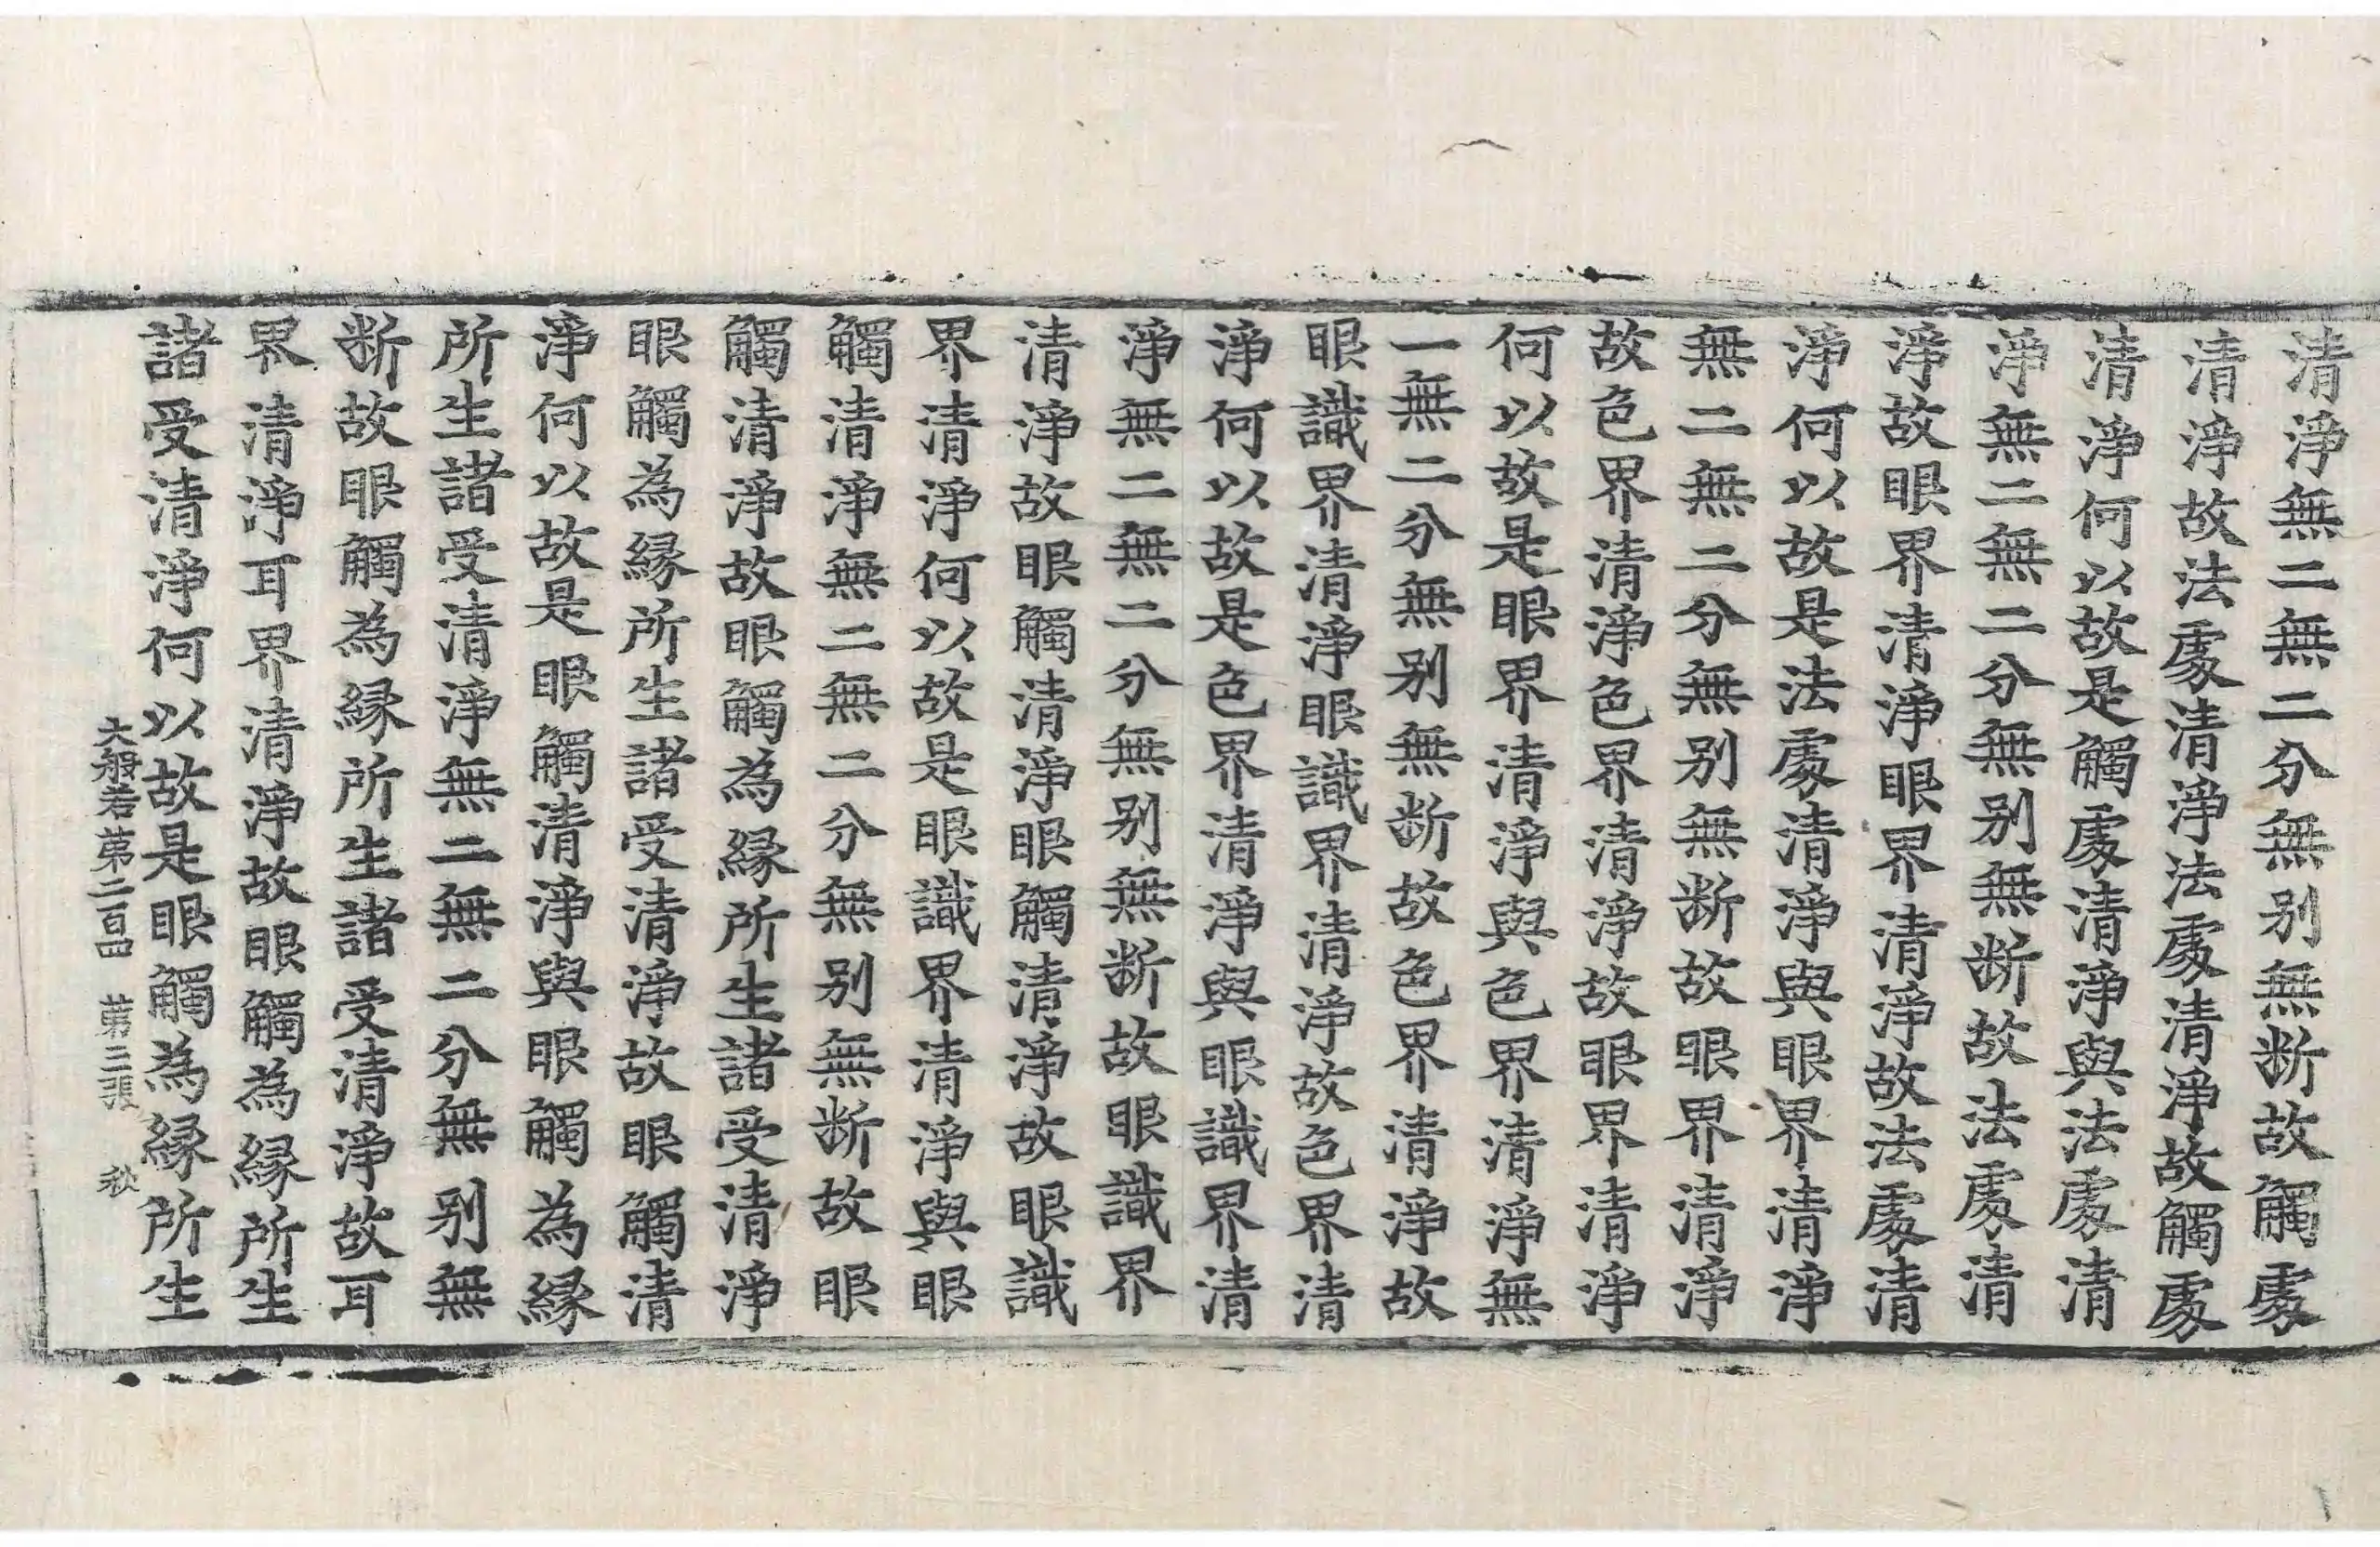 清淨無二無二分無别無断故觸處
清淨故法處清淨法處清淨故觸處
清淨何以故是觸處清淨與法處清
淨無二無二分無别無断故法處清
淨故眼界清淨眼界清淨故法處清
淨何以故是法處清淨與眼界清淨
無二無二分無别無断故眼界清淨
故色界清淨色界清淨故眼界清淨
何以故是眼界清淨與色界清淨無
一無二分無别無断故色界清淨故
眼識界清淨眼識界清淨故色界清
淨何以故是色界清淨與眼識界清
淨無二無二分無别無断故眼識界
清淨故眼觸清淨眼觸清淨故眼識
界清淨何以故是眼識界清淨與眼
觸清淨無二無二分無别無断故眼
觸清淨故眼觸為縁所生諸受清淨
眼觸為縁所生諸受清淨故眼觸清
淨何以故是眼觸清淨與眼觸為縁
所生諸受清淨無二無二分無别無
断故眼觸為縁所生諸受清淨故耳
界清淨耳界清淨故眼觸為縁所生
諸受清淨何以故是眼觸為縁所生
大般若苐二百四 苐三張 秋